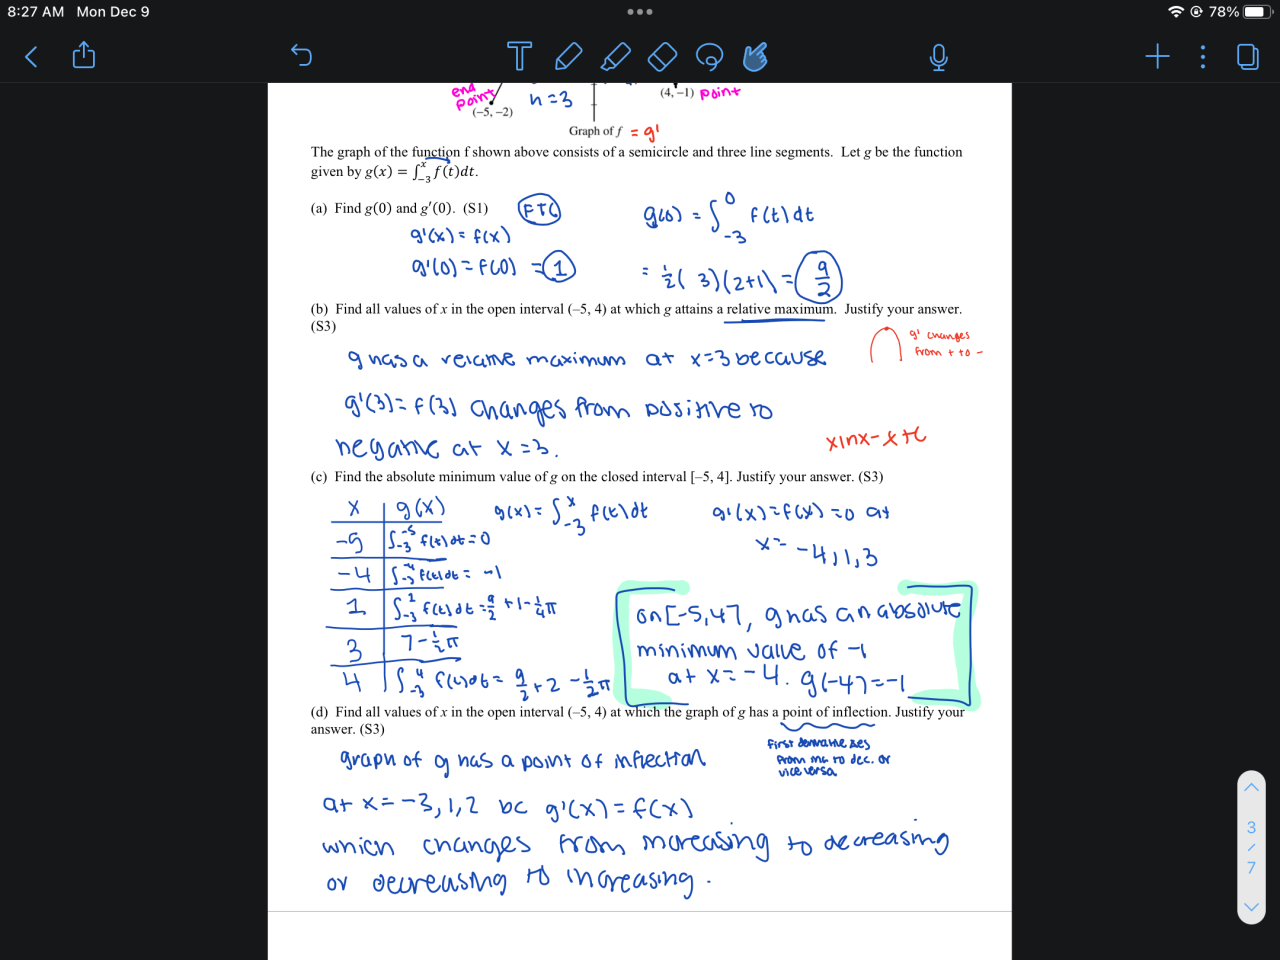 8:27 AM Mon Dec 9
78%
end
point
(−5, −2)
n = 3
(4, −1) point
Graph of f = g'
The graph of the function f shown above consists of a semicircle and three line segments. Let g be the function
given by g(x) = ∫₋₃ˣ f(t)dt.
(a) Find g(0) and g′(0). (S1) FTC
g(0) = ∫₋₃⁰ f(t)dt
g'(x) = f(x)
g'(0) = f(0) = 1
= ½(3)(2+1) = 9/2
(b) Find all values of x in the open interval (−5, 4) at which g attains a relative maximum. Justify your answer.
(S3)
g' changes
from + to −
g has a relative maximum at x=3 because
g'(3) = f(3) changes from positive to
negative at x = 3.
xlnx − x + c
(c) Find the absolute minimum value of g on the closed interval [−5, 4]. Justify your answer. (S3)
x g(x)
g(x) = ∫₋₃ˣ f(t)dt
g'(x) = f(x) = 0 at
x = −4, 1, 3
−5 ∫₋₃⁻⁵ f(t)dt = 0
−4 ∫₋₃⁻⁴ f(t)dt = −1
1 ∫₋₃¹ f(t)dt = 9/2 + 1 − ¼π
3 7 − ½π
4 ∫₋₃⁴ f(t)dt = 9/2 + 2 − ½π
on [−5,4], g has an absolute
minimum value of −1
at x = −4. g(−4) = −1
(d) Find all values of x in the open interval (−5, 4) at which the graph of g has a point of inflection. Justify your
answer. (S3)
First derivative
from inc to dec. or
vice versa
graph of g has a point of inflection
at x = −3, 1, 2 bc g'(x) = f(x)
which changes from increasing to decreasing
or decreasing to increasing.
3
/
7